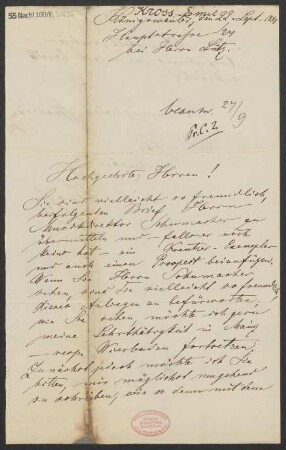 55 Nachl 100/B,
Kross, Emil
Königswinter, den 22. Sept. 18
Hauptstrasse
bei Herrn
beantw. 27/9
Hochgeehrte Herren!
Sie sind vielleicht so freundlich,
beifolgenden Brief Herrn
Musikdirektor Schumacher zu
übermitteln und falls er noch
keins hat - ein Exemplar
und auch einen Prospect beizufügen.
Wenn Sie Herrn Schumacher
sehen, sind Sie vielleicht so freundlich
dieses zu befürworten,
wie Sie sehen möchte ich gern
meine Lehrthätigkeit in Mainz
resp. Wiesbaden fortsetzen.
Zunächst jedoch möchte ich Sie
bitten, mir möglichst umgehend
zu schreiben, wie es denn mit dem